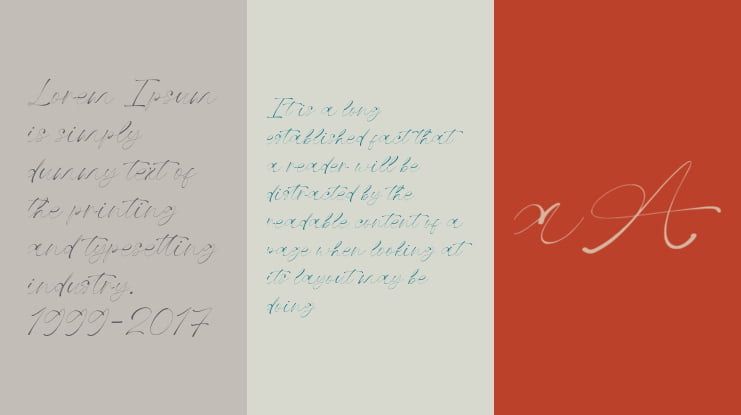 Lorem Ipsum
is simply
dummy text of
the printing
and typesetting
industry.
1999-2017
It is a long
established fact that
a reader will be
distracted by the
readable content of a
page when looking at
its layout may be
doing
x A